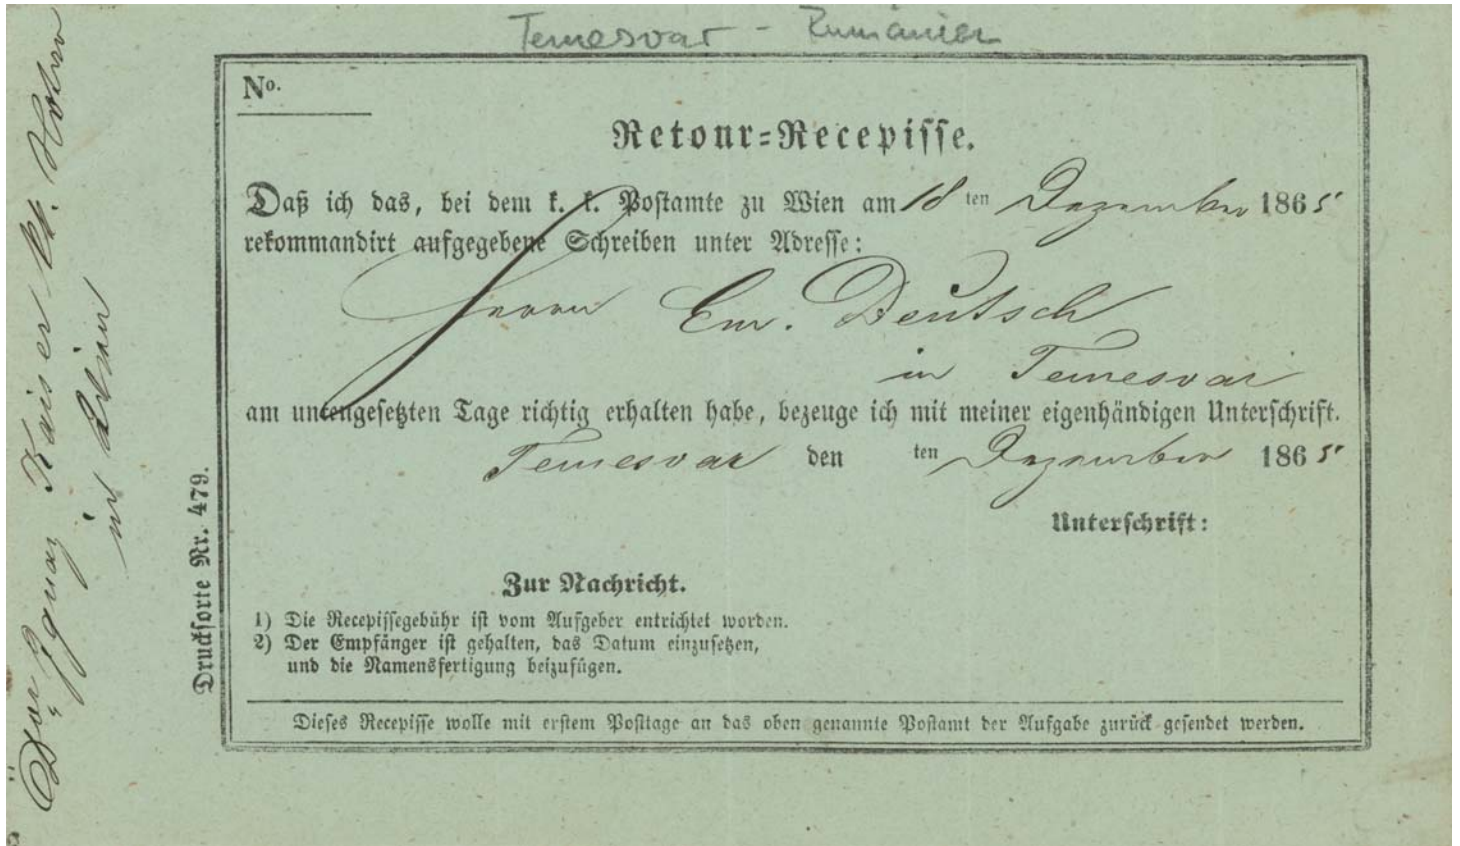 Temesvar - Rumänien
No.
Retour-Recepisse.
Daß ich das, bei dem k. k. Postamte zu Wien am 18 ten Dezember 1865
rekommandirt aufgegebene Schreiben unter Adresse:
Herrn Em. Deutsch
in Temesvar
am untengesetzten Tage richtig erhalten habe, bezeuge ich mit meiner eigenhändigen Unterschrift.
Temesvar den ten Dezember 1865
Unterschrift:
Zur Nachricht.
1) Die Recepissegebühr ist vom Aufgeber entrichtet worden.
2) Der Empfänger ist gehalten, das Datum einzusetzen,
und die Namensfertigung beizufügen.
Dieses Recepisse wolle mit erstem Posttage an das oben genannte Postamt der Aufgabe zurück gesendet werden.
Drucksorte Nr. 479.
Ignaz Kaiser
in Wien